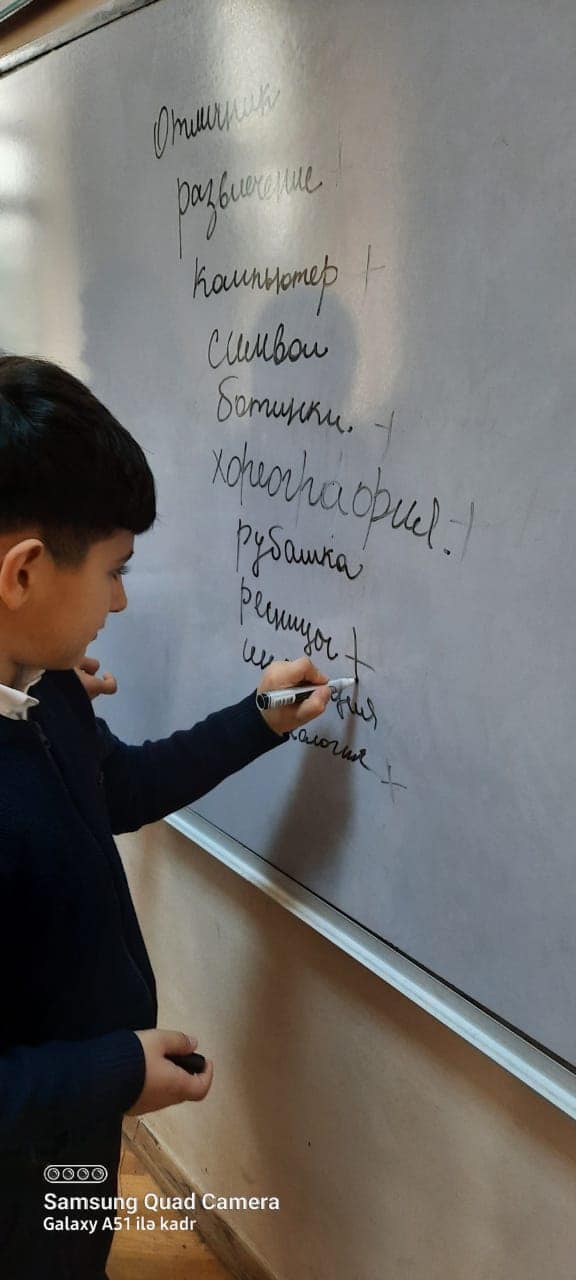 Отличник
развлечение +
компьютер +
символ
ботинки. +
хореография. +
рубашка
ресницы +
+
Samsung Quad Camera
Galaxy A51 ilə kadr